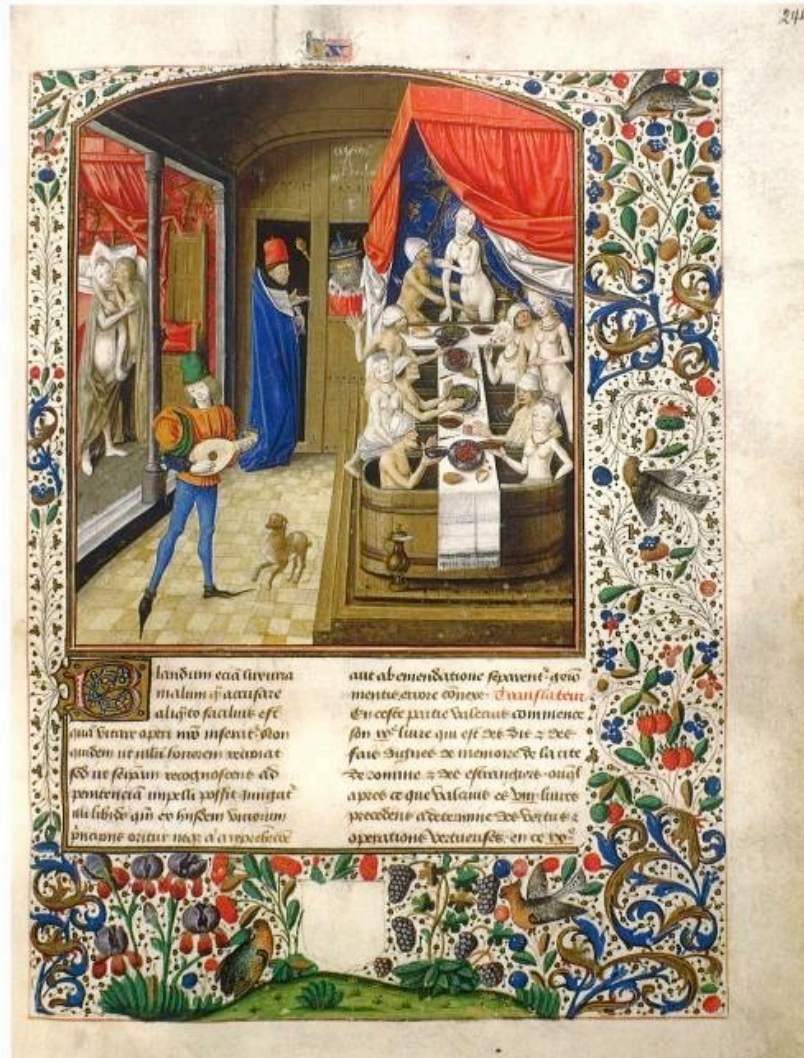 244
Blandum etiā luxuria
malum q̄ accusare
aliq̄to facilius est
qua vitare operi nr̄o inserat͛ non
quidem ut ullū honorem recipiat
sed ut seipsam recognoscens ad
penitenciā impelli possit iungat͛
illi libido qm̄ ex hisdem viciorum
principiis oritur neqʒ a a reprehēcōe
aut ab emendatione separent͛ gemīo
mentis errore cōnexe. Translateur
En ceste partie valerius commence
son ixᵉ livre qui est des dis & des
fais dignes de memoire de la cite
de romme & des estrangiers ouql̄
apres ce que valerius es viii livres
precedens a determine des vertus &
operations vertueuses, en ce ixᵉ